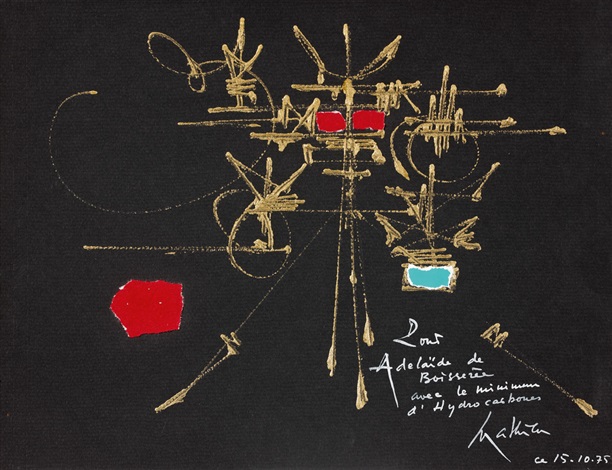 Pour
Adelaïde de
Boisserée
avec le minimum
d'Hydrocarbones
Mathieu
ce 15-10-75